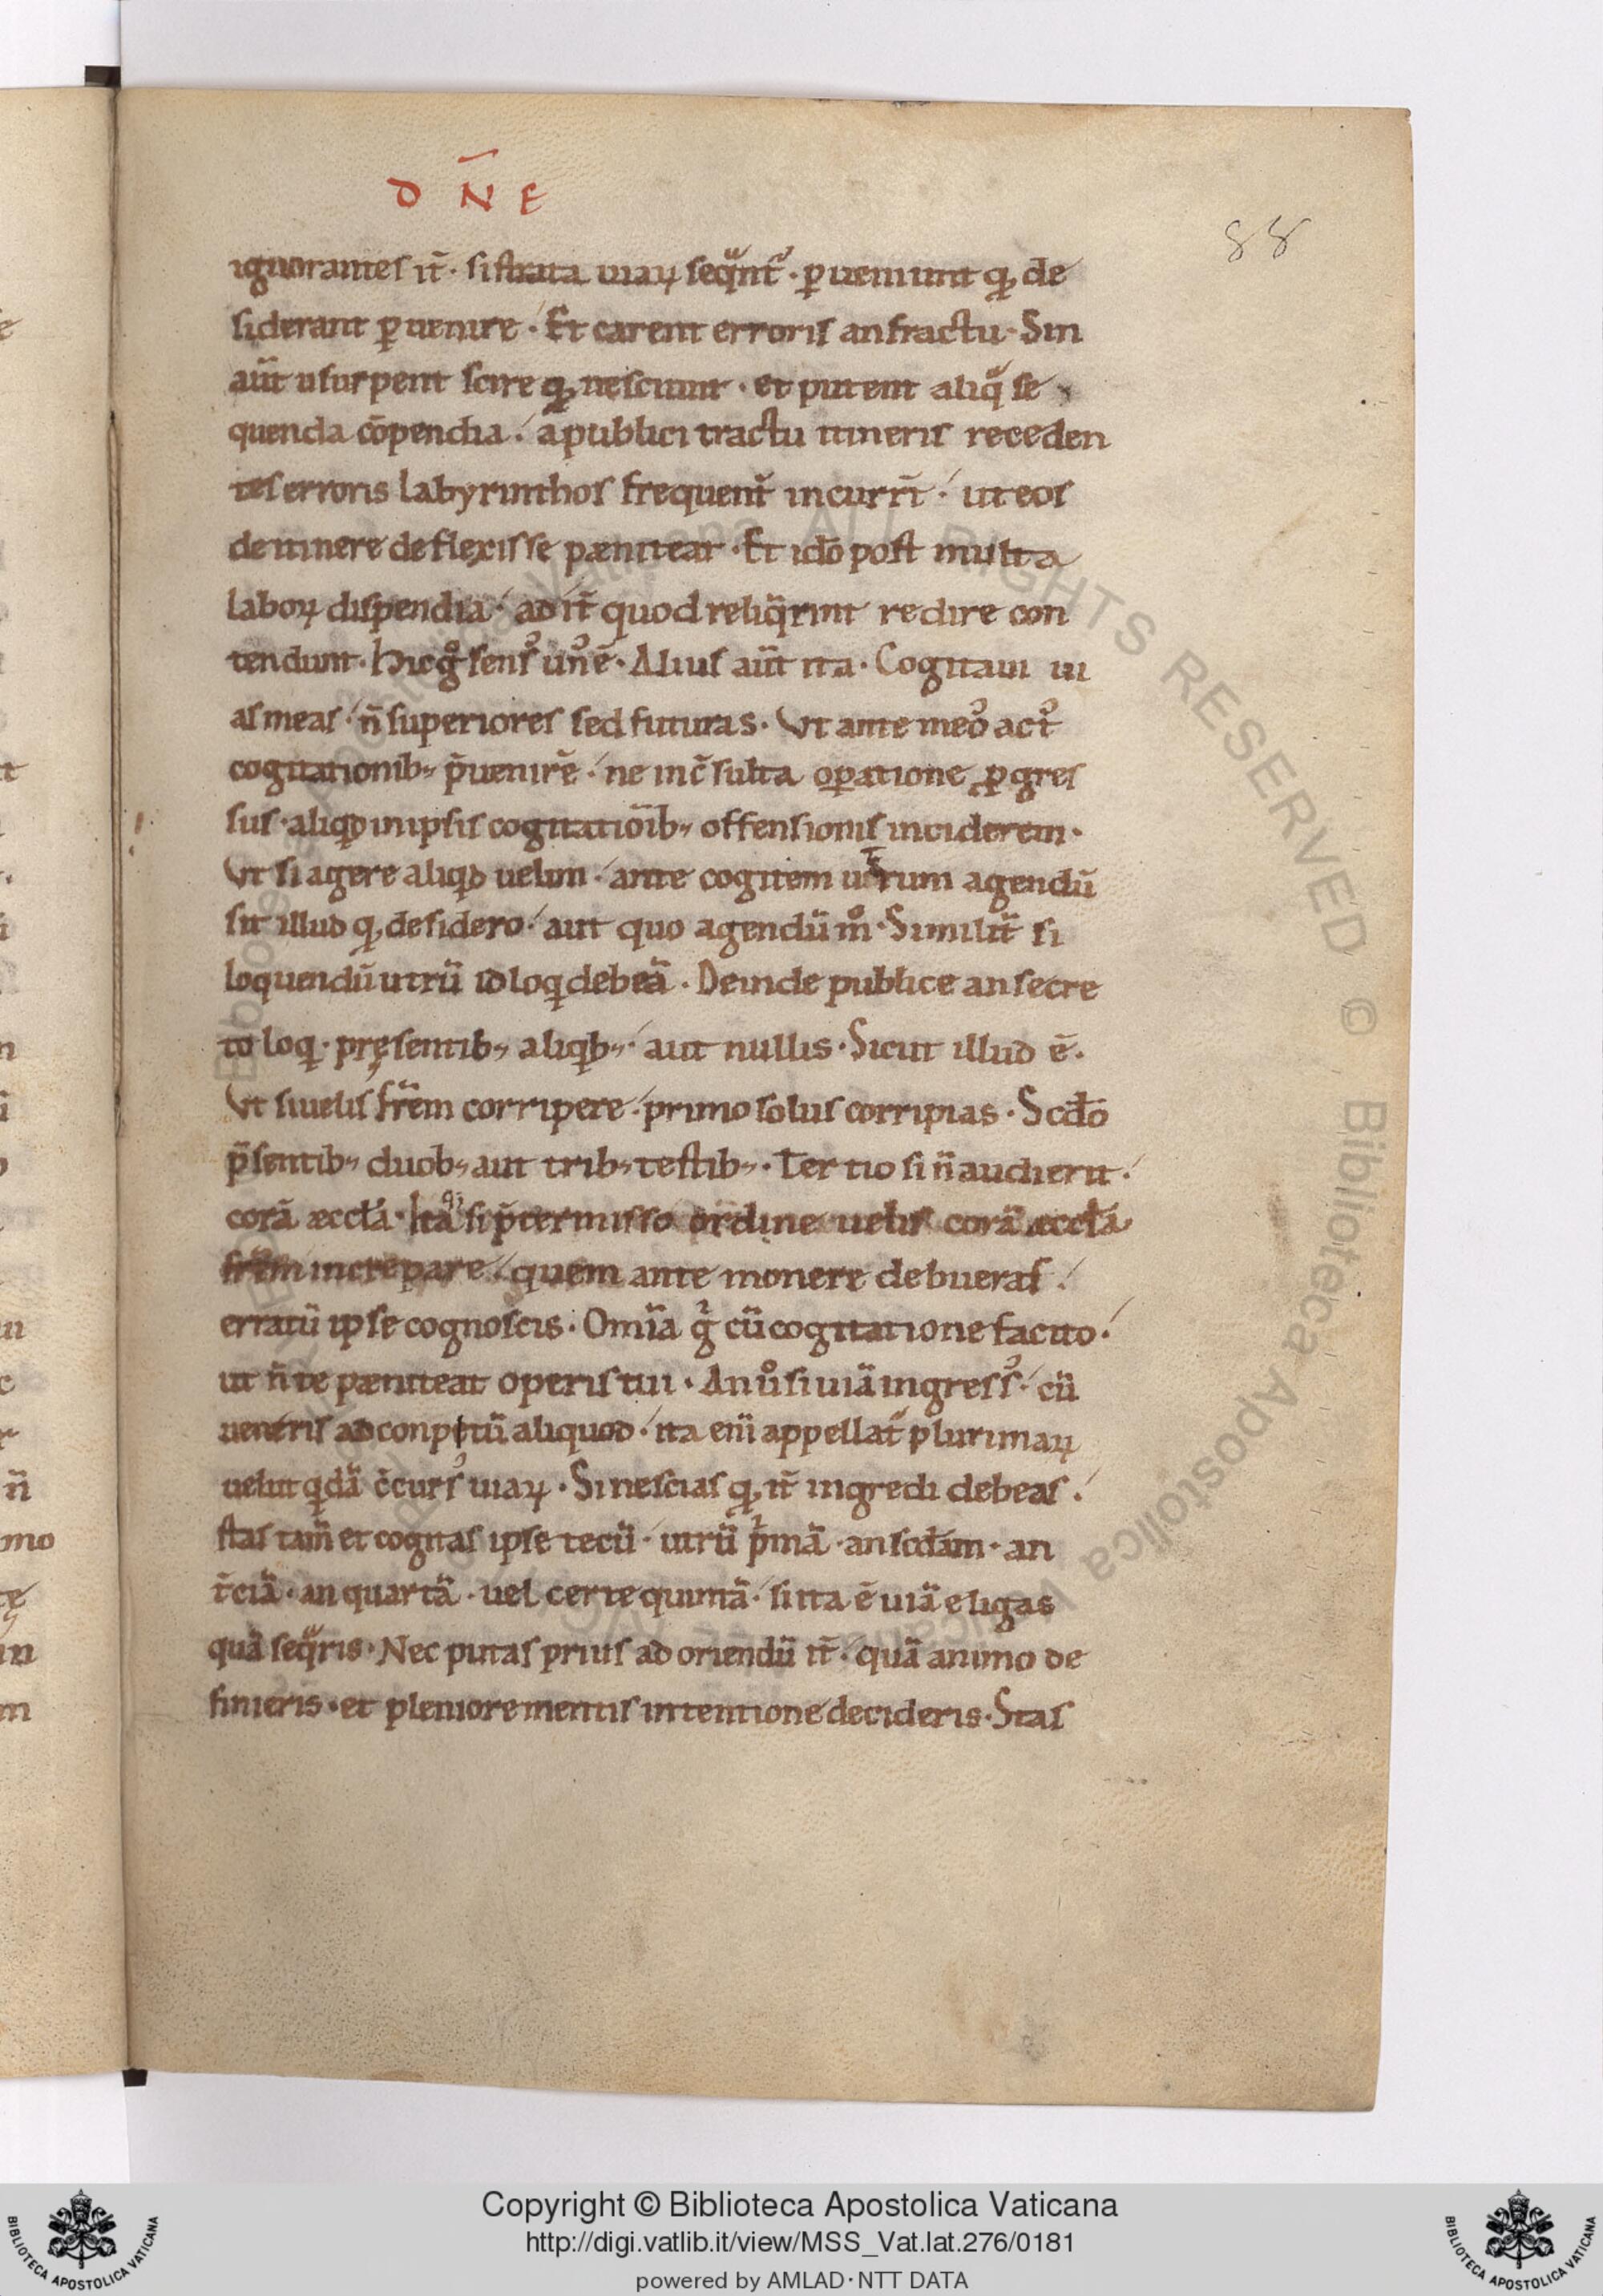 D N̄ E
88
ignorantes it̄ · si strata uiaꝝ seq̄nt᷑ · ꝑueniunt ꝙ de
siderant ꝑuenire · Et carent erroris anfractu · Sin
aūt usurpent scire ꝙ nesciunt · et putent aliq̄ se
quenda cōpendia · a publici tractu itineris receden
tes erroris labyrinthos frequent̄ incurrt̄ · ut eos
de itinere deflexisse pæniteat · Et idō post multa
laboꝝ dispendia · ad it̄ quod reliq̄rint redire con
tendunt · Hic gͦ sensꝰ unꝰ ē · Alius aūt ita · Cogitaui ui
as meas · n̄ superiores sed futuras · Vt ante meoꝰ actꝰ
cogitationib; p̄uenirē · ne inc̄sulta oꝑatione ꝓgres
sus · aliqd in ipsis cogitatiōib; offensionis inciderem ·
Vt si agere aliqd uelim · ante cogitem utrum agendū
sit illud ꝙ desidero · aut quo agendū mͦ · Similit̄ si
loquendū utrū id loq debeā · Deinde publice an secre
to loq · pręsentib; aliqb; · aut nullis · Sicut illud ē ·
Vt si uelis fr̄em corripere · primo solus corripias · Scdō
p̄sentib; duob; aut trib; testib; · Tertio si n̄ audierit ·
corā æccłā · Ita si p̄termisso ordine uelis corā æccłā
fr̄em increpare · quem ante monere debueras ·
erratū ipse cognoscis · Om̄ia gͥ cū cogitatione facito ·
ut n̄ te pæniteat operis tui · An uͦ si uiā ingressꝰ · cū
ueneris ad conpitū aliquod · ita eni̅ appellat᷑ plurimaꝝ
uelut qdā c̄cursꝰ uiaꝝ · Si nescias ꝙ it̄ ingredi debeas ·
stas tam̄ et cogitas ipse tecū · utrū pͥmā · an scdam · an
t̄ciā · an quartā · uel certe quintā · si ita ē uiā eligas
quā seq̄ris · Nec putas prius adoriendū it̄ · quā animo de
finieris · et pleniore mentis intentione decideris · Stas
Copyright © Biblioteca Apostolica Vaticana
http://digi.vatlib.it/view/MSS_Vat.lat.276/0181
powered by AMLAD·NTT DATA
BIBLIOTECA APOSTOLICA VATICANA
BIBLIOTECA APOSTOLICA VATICANA